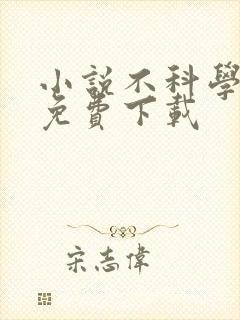 小說不科學
免費下載
宋志偉